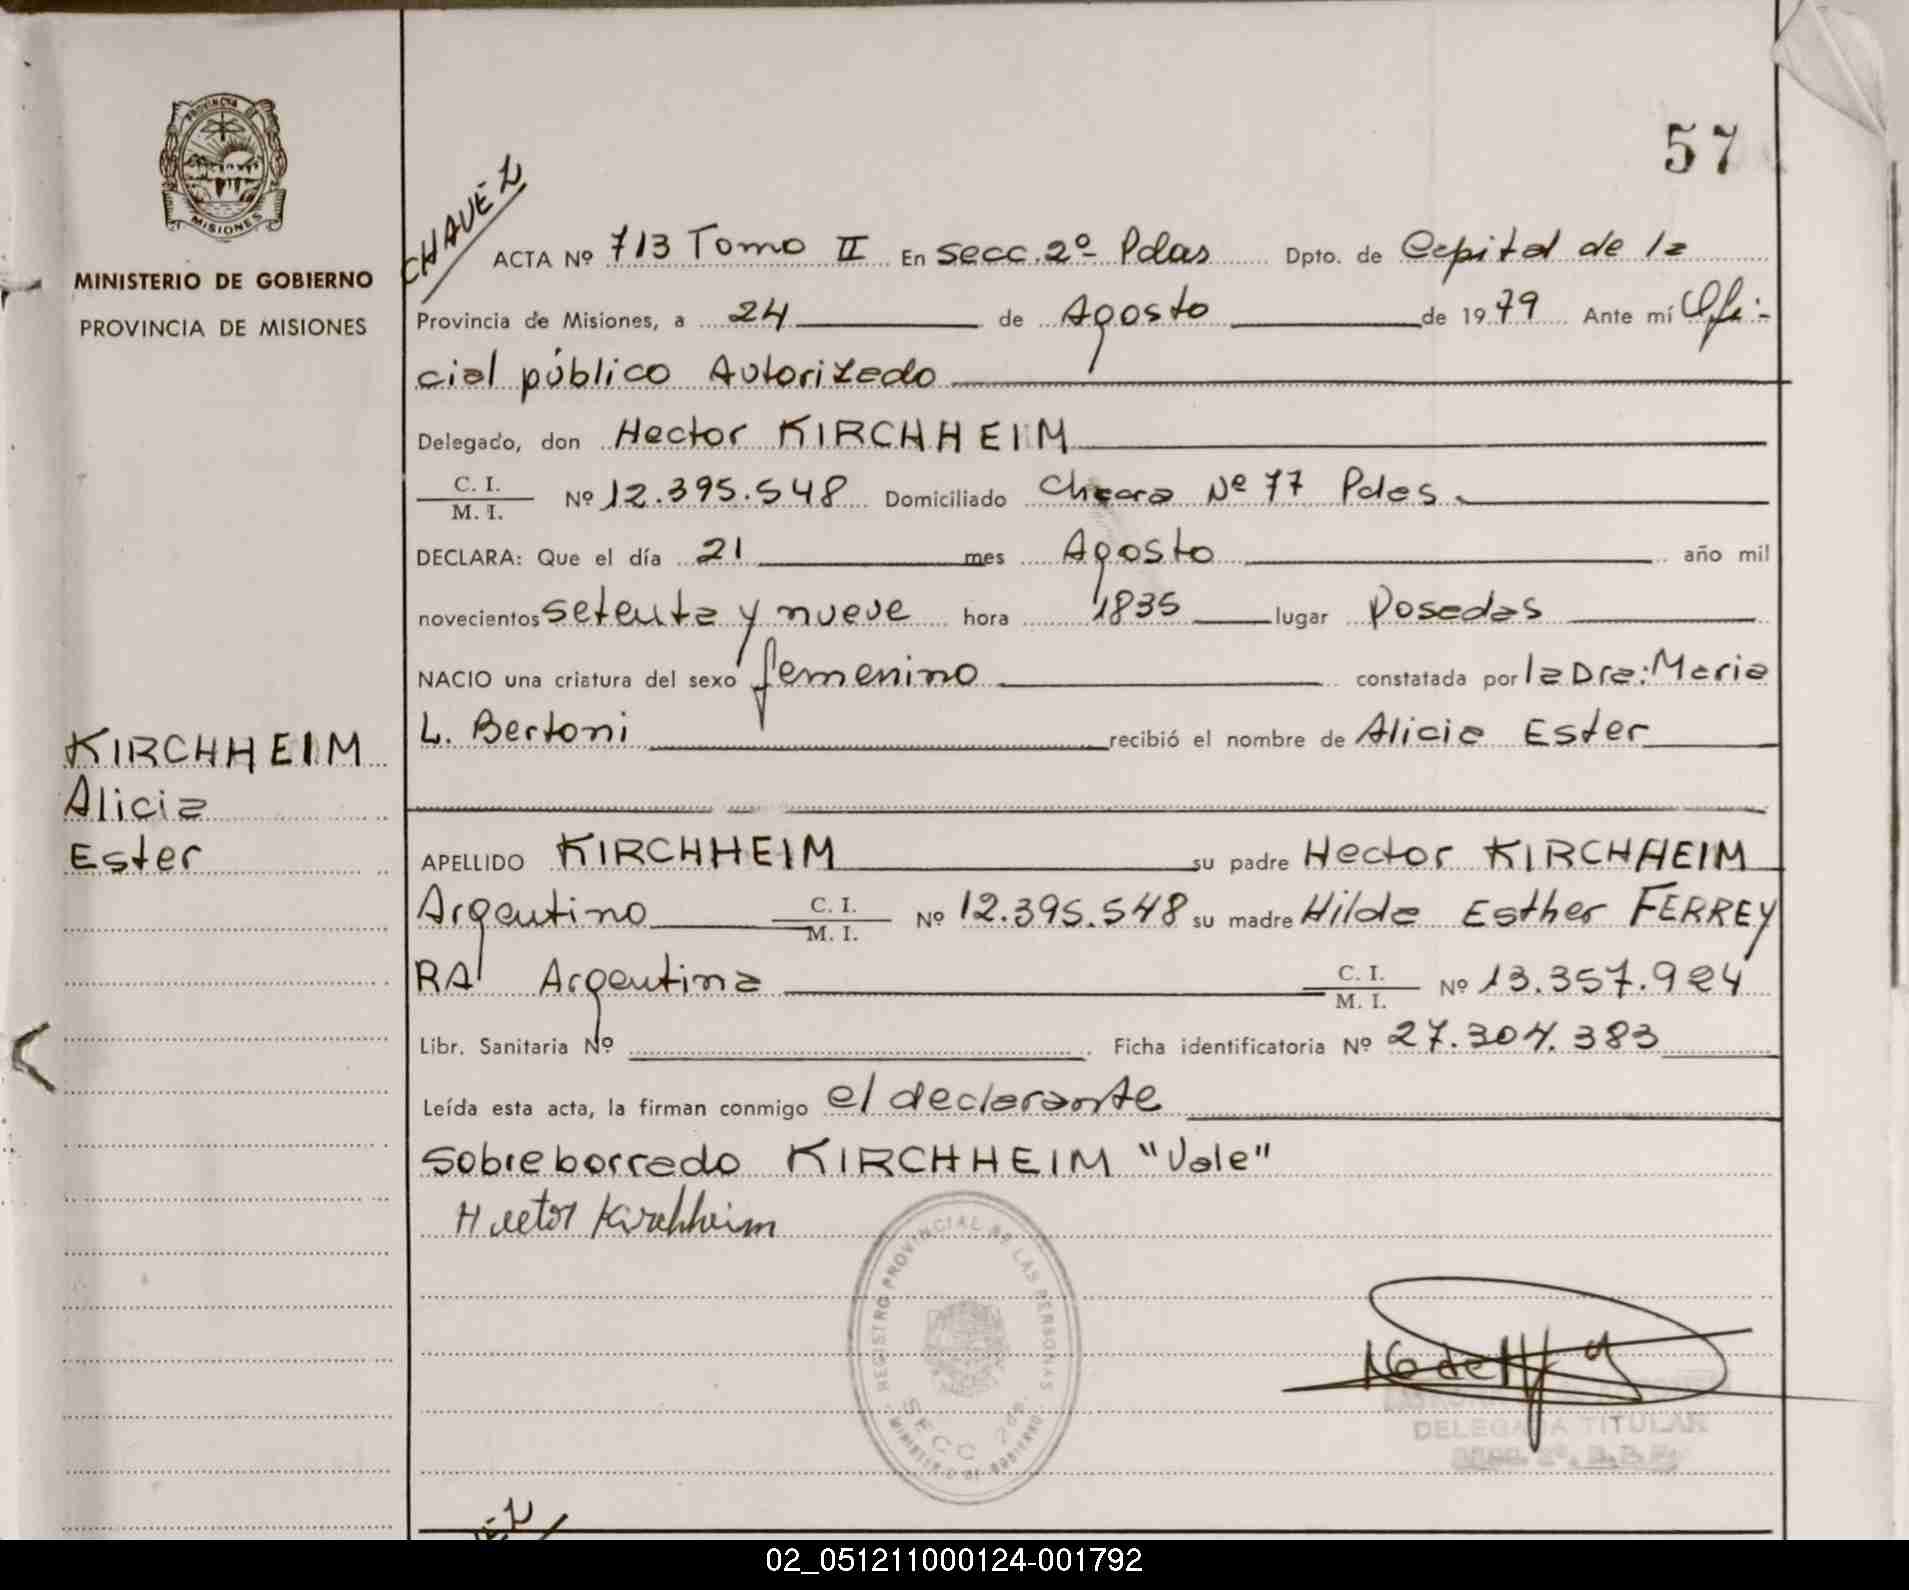 57
PROVINCIA DE
MISIONES
MINISTERIO DE GOBIERNO
PROVINCIA DE MISIONES
CHAVEZ
ACTA Nº 713 Tomo II En secc. 2º Pdas Dpto. de Capital de la
Provincia de Misiones, a 24 de Agosto de 1979 Ante mí Ofi-
cial público Autorizado
Delegado, don Hector KIRCHHEIM
C. I.
M. I. Nº 12.395.548 Domiciliado Chacra Nº 77 Pdas.
DECLARA: Que el día 21 mes Agosto año mil
novecientos setenta y nueve hora 1835 lugar Posadas
NACIO una criatura del sexo femenino constatada por la Dra: Maria
L. Bertoni recibió el nombre de Alicia Ester
KIRCHHEIM
Alicia
Ester
APELLIDO KIRCHHEIM su padre Hector KIRCHHEIM
Argentino C. I.
M. I. Nº 12.395.548 su madre Hilda Esther FERREY
RA Argentina C. I.
M. I. Nº 13.357.924
Libr. Sanitaria Nº Ficha identificatoria Nº 27.304.383
Leída esta acta, la firman conmigo el declarante
Sobreborrado KIRCHHEIM "Vale"
Hector Kirchheim
REGISTRO PROVINCIAL DE LAS PERSONAS
SECC 2da.
MINISTERIO DE GOBIERNO
DELEGADA TITULAR
02_051211000124-001792